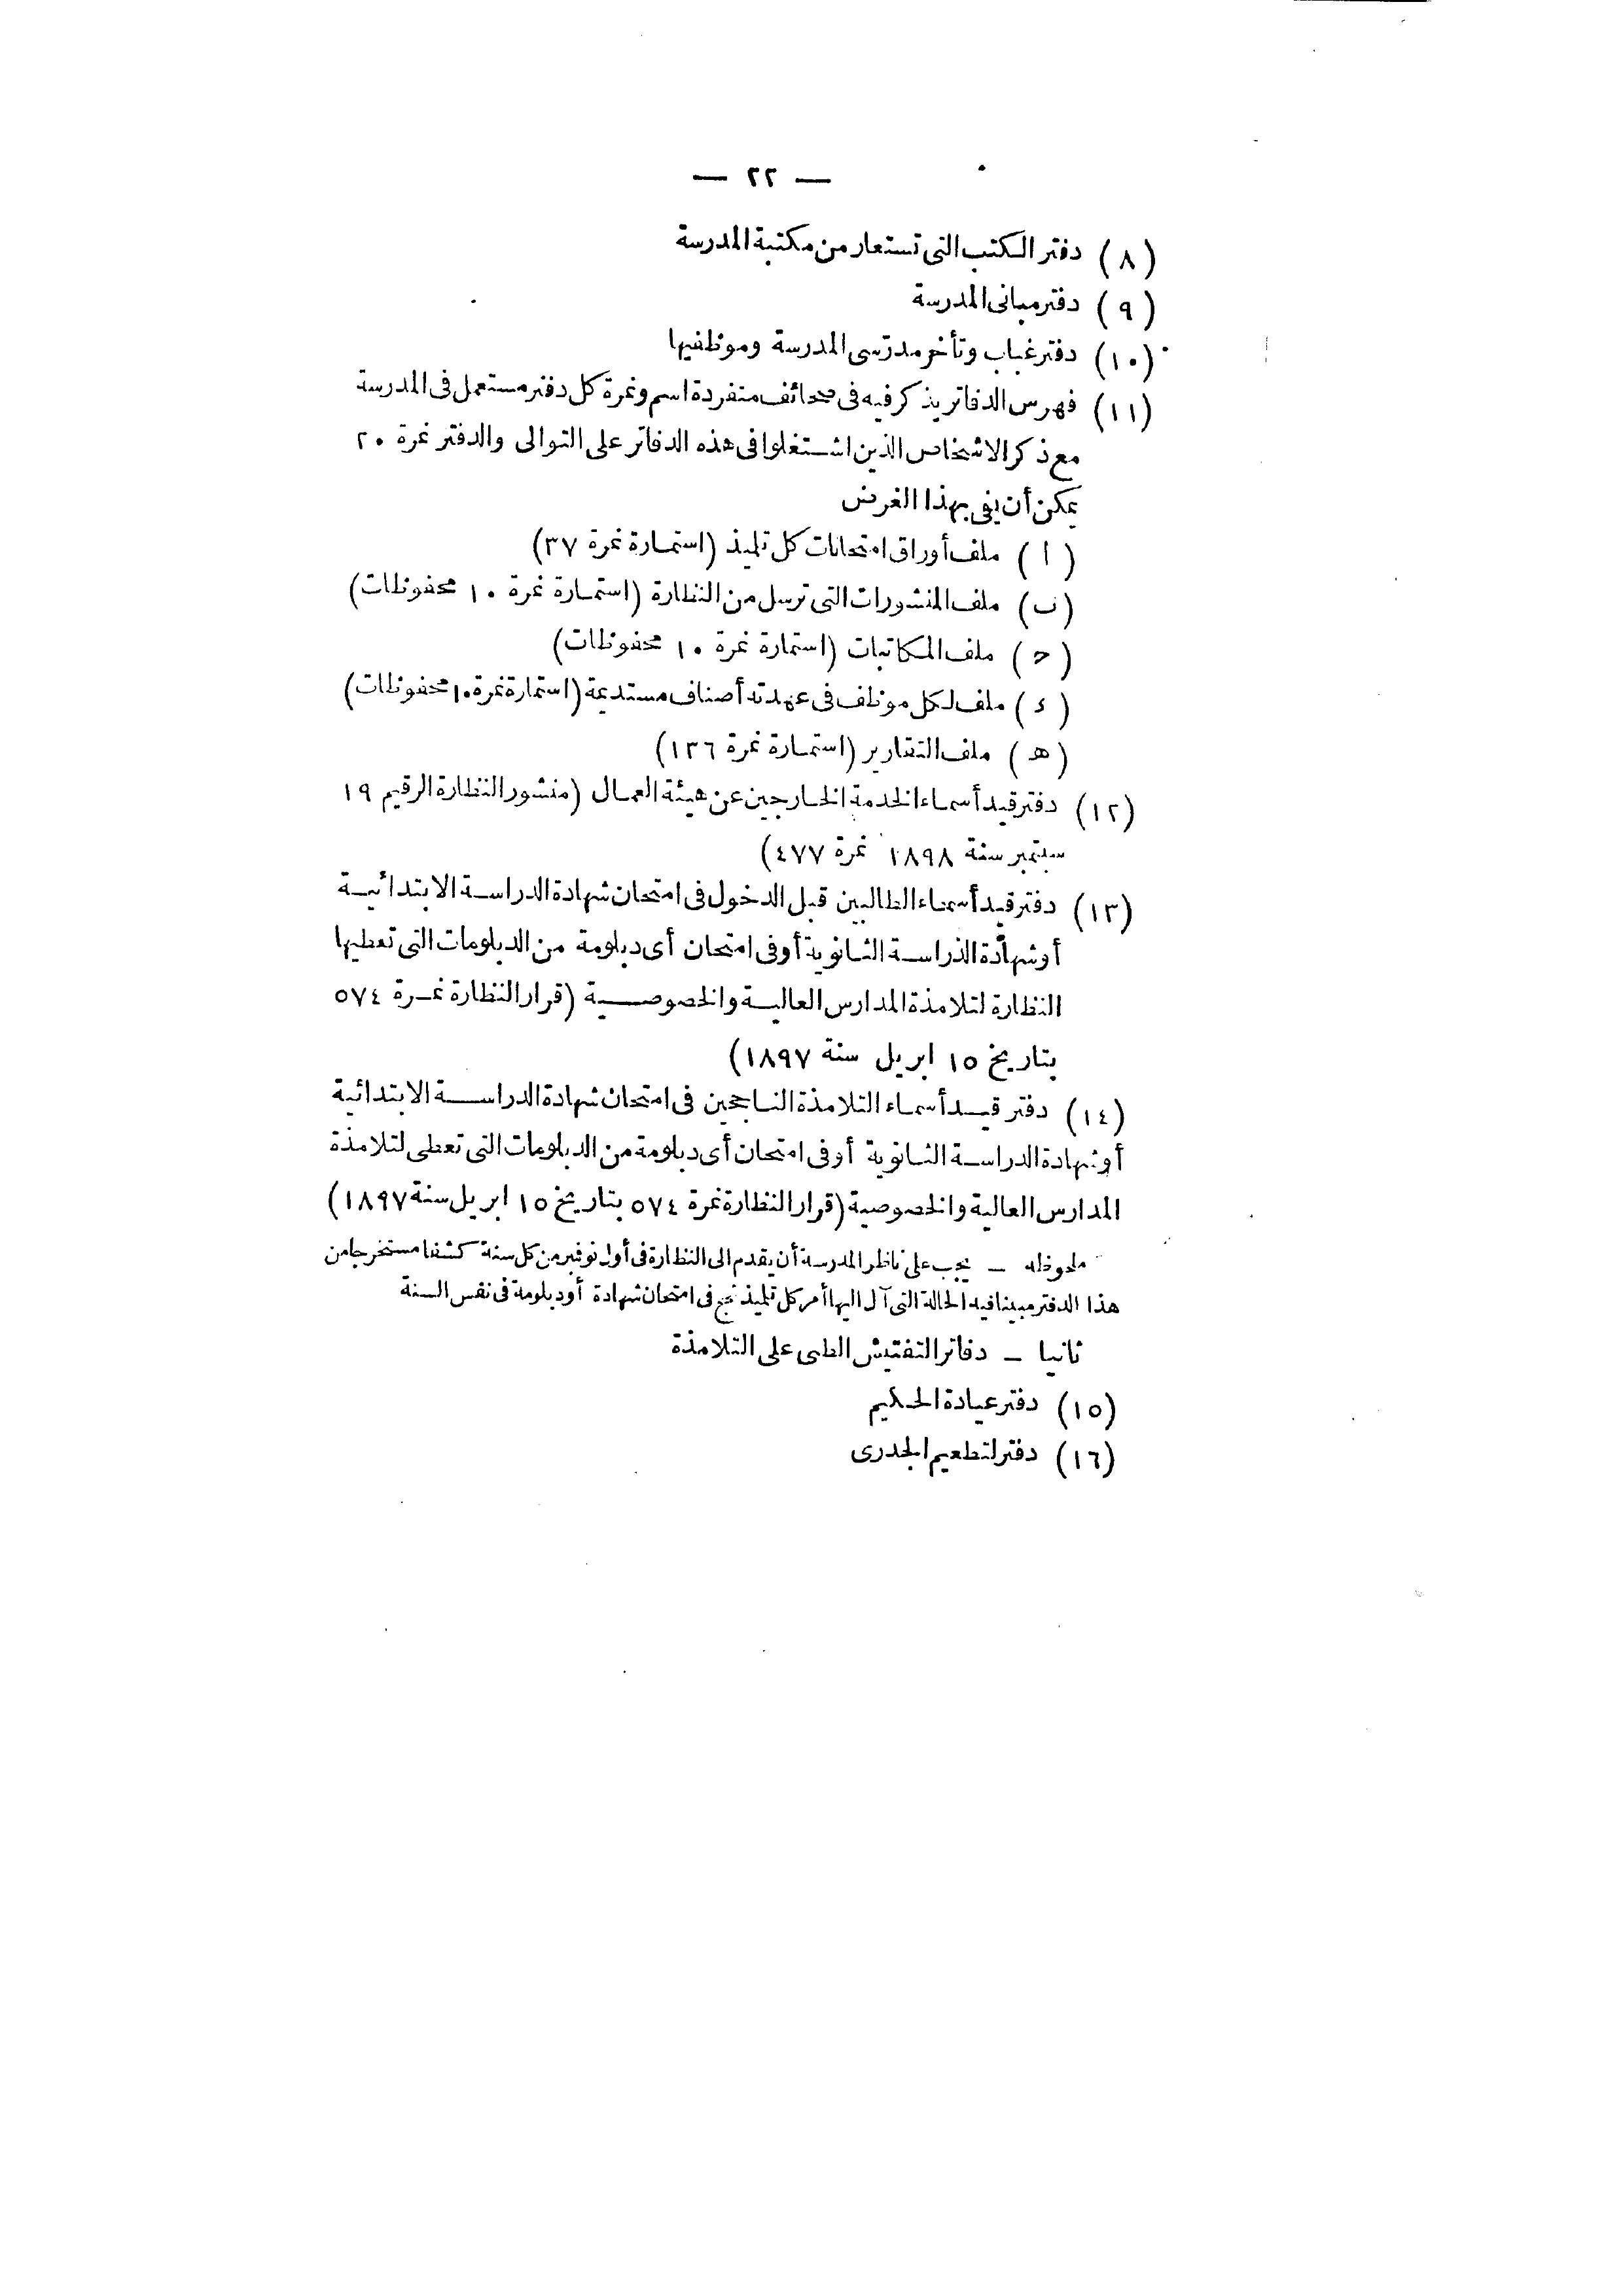 — ٢٢ —
(٨) دفتر الكتب التى تستعار من مكتبة المدرسة
(٩) دفتر مبانى المدرسة
(١٠) دفتر غياب وتأخر مدرّسى المدرسة وموظفيها
(١١) فهرس الدفاتر يذكر فيه فى صحائف منفردة اسم ونمرة كل دفتر مستعمل فى المدرسة
مع ذكر الاشخاص الذين اشتغلوا فى هذه الدفاتر على التوالى والدفتر نمرة ٢٠
يمكن أن يفى بهذا الغرض
(ا) ملف أوراق امتحانات كل تلميذ (استمارة نمرة ٣٧)
(ب) ملف المنشورات التى ترسل من النظارة (استمارة نمرة ١٠ محفوظات)
(ح) ملف المكاتبات (استمارة نمرة ١٠ محفوظات)
(ء) ملف لكل موظف فى عهدته أصناف مستديمة (استمارة نمرة ١٠ محفوظات)
(هـ) ملف التقارير (استمارة نمرة ١٣٦)
(١٢) دفتر قيد أسماء الخدمة الخارجين عن هيئة العمال (منشور النظارة الرقيم ١٩
سبتمبر سنة ١٨٩٨ نمرة ٤٧٧)
(١٣) دفتر قيد أسماء الطالبين قبل الدخول فى امتحان شهادة الدراسة الابتدائية
أو شهادة الدراسة الثانوية أو فى امتحان أى دبلومة من الدبلومات التى تعطيها
النظارة لتلامذة المدارس العالية والخصوصية (قرار النظارة نمرة ٥٧٤
بتاريخ ١٥ ابريل سنة ١٨٩٧)
(١٤) دفتر قيد أسماء التلامذة الناجحين فى امتحان شهادة الدراسة الابتدائية
أو شهادة الدراسة الثانوية أو فى امتحان أى دبلومة من الدبلومات التى تعطى لتلامذة
المدارس العالية والخصوصية (قرار النظارة نمرة ٥٧٤ بتاريخ ١٥ ابريل سنة ١٨٩٧)
ملحوظه — يجب على ناظر المدرسة أن يقدم الى النظارة فى أول نوفمبر من كل سنة كشفا مستخرجا من
هذا الدفتر مبينا فيه الحالة التى آل اليها أمر كل تلميذ نجح فى امتحان شهادة أو دبلومة فى نفس السنة
ثانيا — دفاتر التفتيش الطبى على التلامذة
(١٥) دفتر عيادة الحكيم
(١٦) دفتر لتطعيم الجدرى